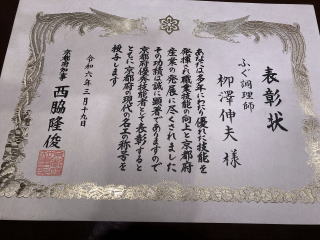 表彰状
ふぐ調理師
栁澤伸夫 様
あなたは多年にわたり優れた技能を
発揮され職業技能の向上と京都府
産業の発展に尽くされました
その功績は誠に顕著でありますので
京都府優秀技能者として表彰すると
ともに京都府の現代の名工の称号を
授与します
令和六年三月十九日
京都府知事 西脇隆俊